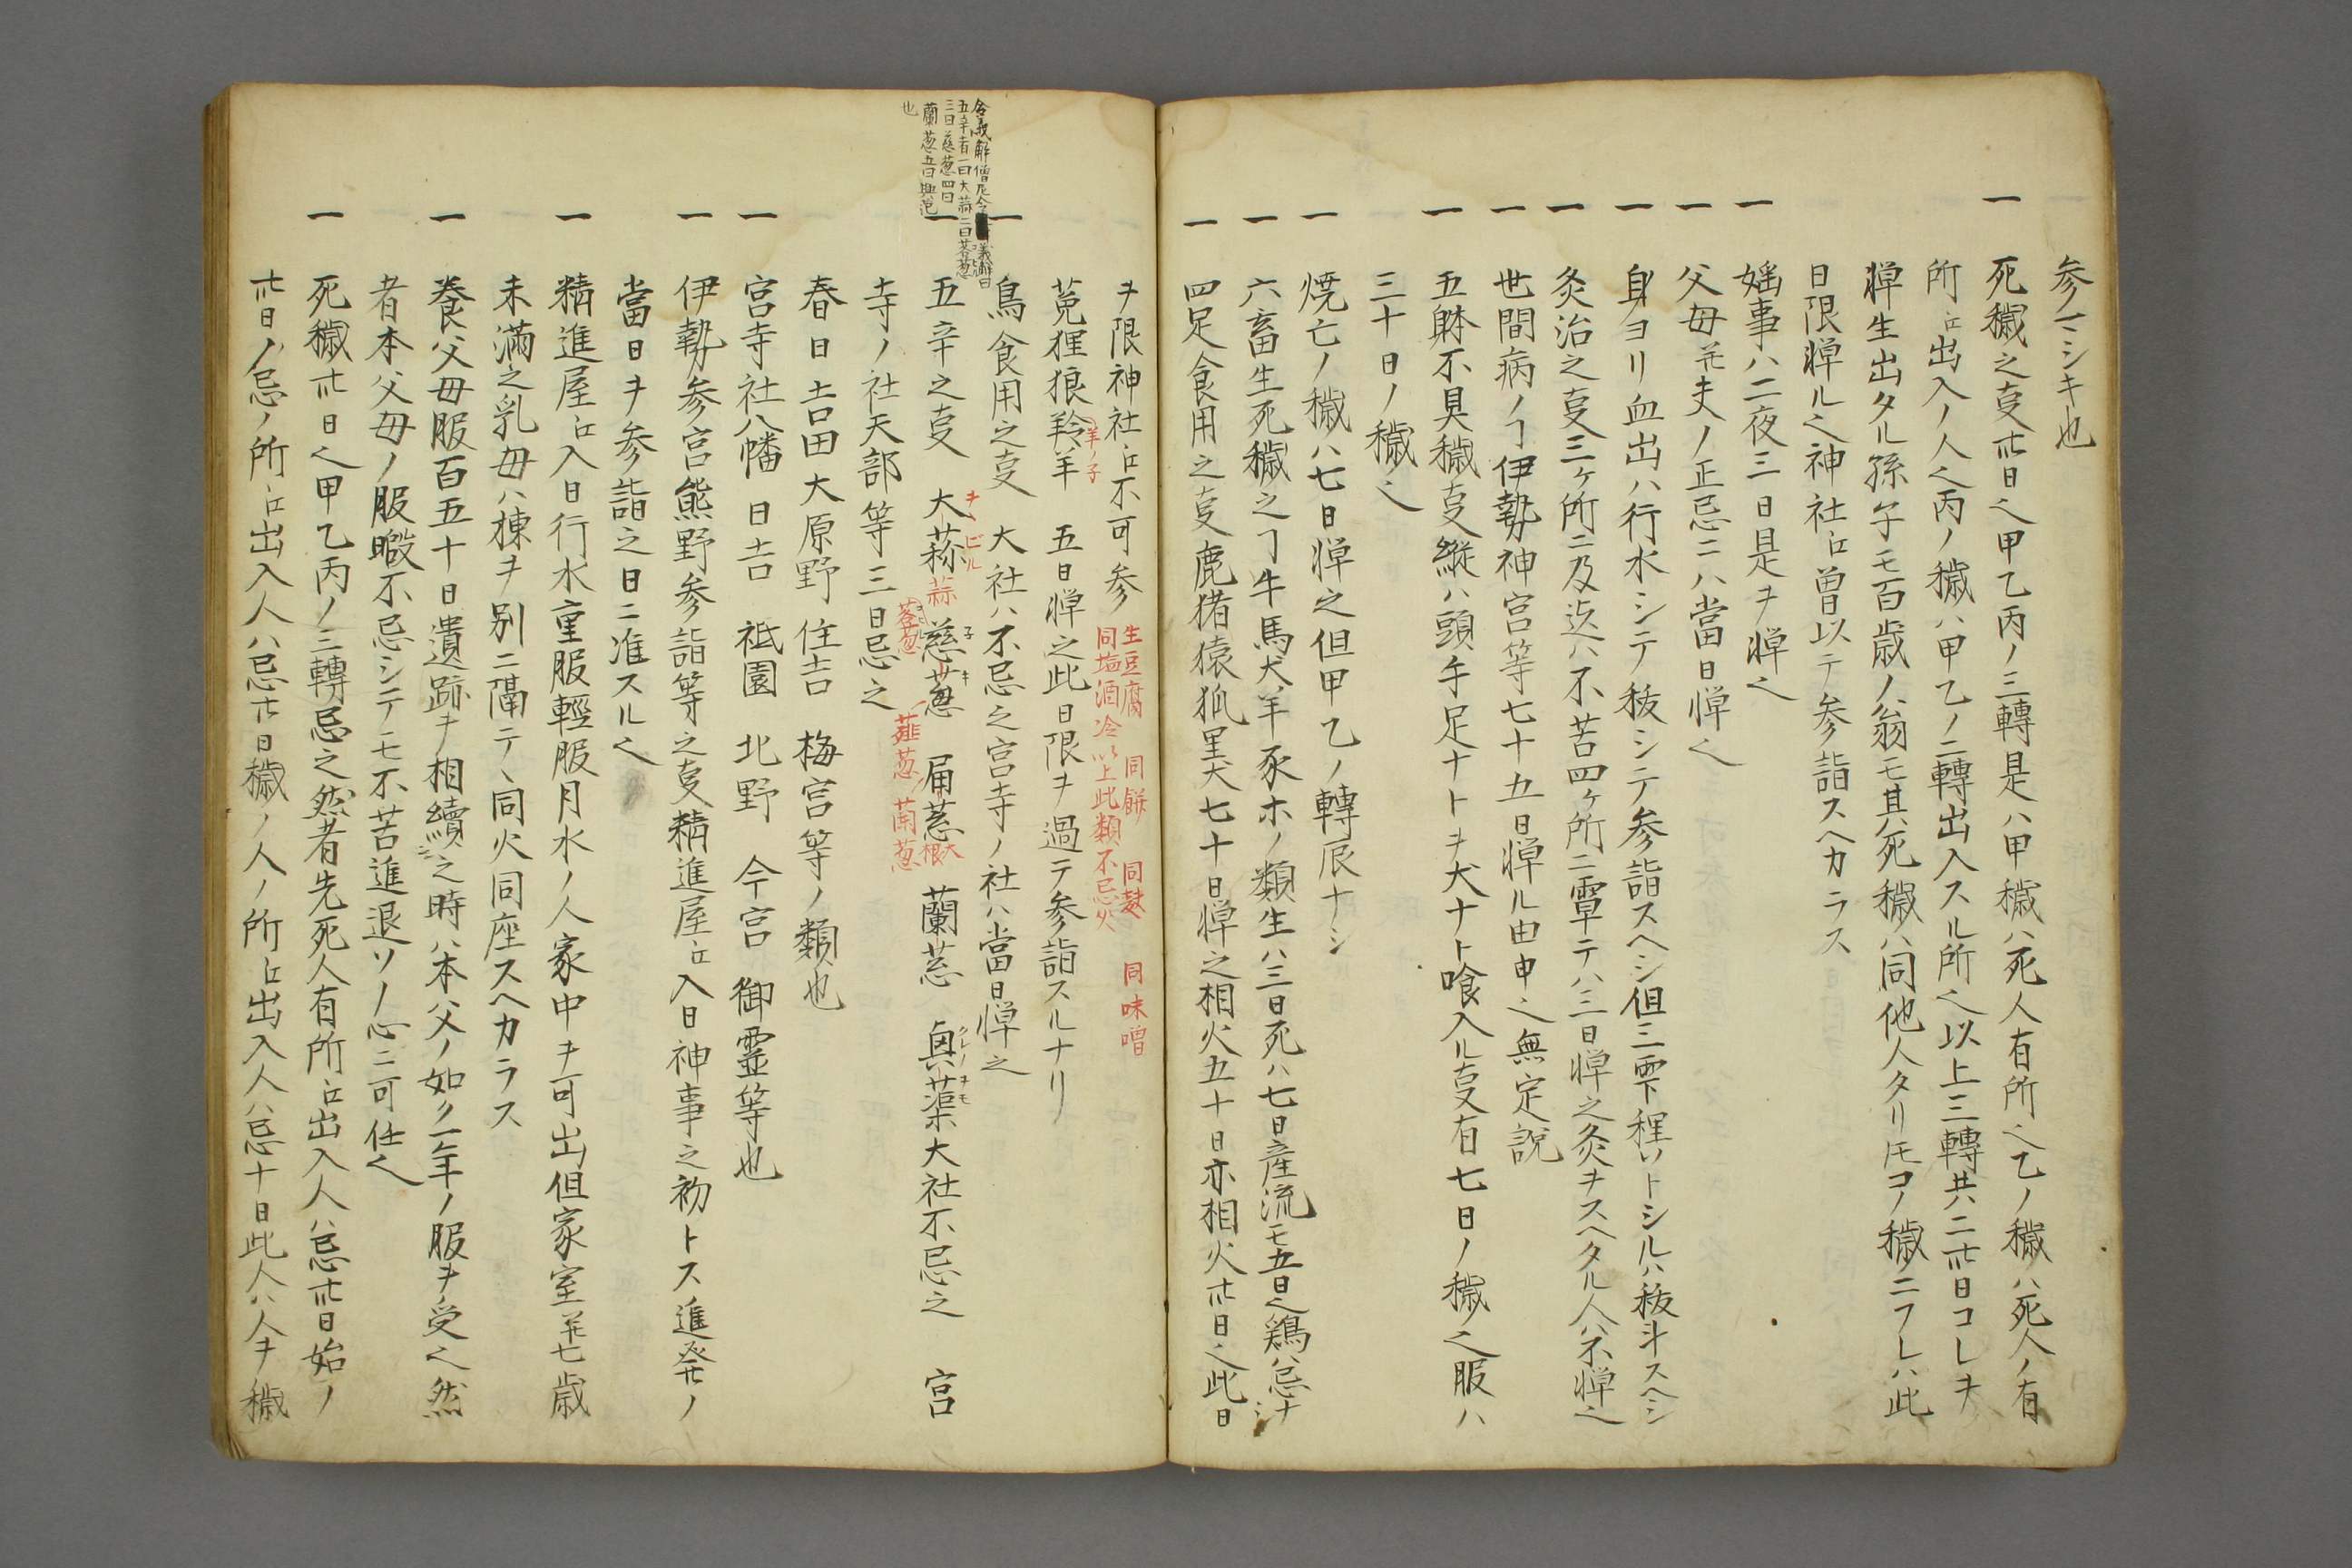 参マシキ也
一 死穢之㕝卅日也甲乙丙ノ三轉是ハ甲穢ハ死人有所也乙ノ穢ハ死人ノ有
所江出入ノ人也丙ノ穢ハ甲乙ノ二轉出入スル所也以上三轉共ハ二卅日コレヲ
憚生出タル孫子モ百歳ノ翁モ其死穢ハ同他人タリ𪜈コノ穢ニフレハ此
日限憚ル也神社江曽以テ参詣スヘカラス
一 婬事ハ二夜三日是ヲ憚也
一 父母并夫ノ正忌ニハ當日憚也
一 身ヨリ血出ハ行水シテ秡シテ参詣スヘシ但三雫程ソトシルハ秡斗スヘシ
一 灸治之㕝三ヶ所ニ及迄ハ不苦四ヶ所ニ覃テハ三日憚之灸ヲスヘタル人ハ不憚也
一 世間病ノヿ伊勢神宮等七十五日憚ル由申也無定説
一 五躰不具穢㕝縦ハ頭手足ナトヲ犬ナト喰入ル㕝有七日ノ穢也服ハ
三十日ノ穢也
一 焼亡ノ穢ハ七日憚之但甲乙ノ轉辰ナシ
一 六畜生死穢之ヿ牛馬犬羊豕ホノ類生ハ三日死ハ七日産流モ五日也鶏ハ忌ナシ
一 四足食用之㕝鹿猪猿狐里犬七十日憚之相火五十日亦相火卅日也此日
ヲ限神社江不可参
生豆腐 同餅 同麸 同味噌
同塩酒冷以上此類不忌火
莵狸狼羚羊 五日憚之此日限ヲ過テ参詣スルナリ
羊ノ子
一 鳥食用之㕝 大社ハ不忌之宮寺ノ社ハ當日憚之
令義解僧尼令義解曰
五辛者一曰大蒜二曰茖葱
三曰慈葱四曰
蘭葱五曰興蕖
也
一 五辛之㕝 大蒜 慈葱 届葱 蘭葱 興蕖大社不忌之 宮
ヲヽビル 蒜 子キ 大根 クレノヲモ
茖葱 韮葱 蘭葱
寺ノ社天部等三日忌之
春日吉田大原野住吉 梅宮等ノ類也
一 宮寺社八幡 日吉 祇園 北野 今宮 御霊等也
一 伊勢参宮熊野参詣等之㕝精進屋江入日神事之初トス進発ノ
當日ヲ参詣之日ニ准スル也
一 精進屋江入日行水重服輕服月水ノ人家中ヲ可出但家室并七歳
未満之乳母ハ棟ヲ別ニ隔テヽ同火同座スヘカラス
一 養父母服百五十日遺跡ヲ相續シ之時ハ本父ノ如ク一年ノ服ヲ受也然
者本父母ノ服暇不忌シテモ不苦進退ソノ心ニ可任也
一 死穢卅日也甲乙丙ノ三轉忌之然者先死人有所江出入人ハ忌卅日始ノ
卅日ノ忌ノ所江出入人ハ忌廿日穢ノ人ノ所江出入人ハ忌十日此人ハ人ヲ穢